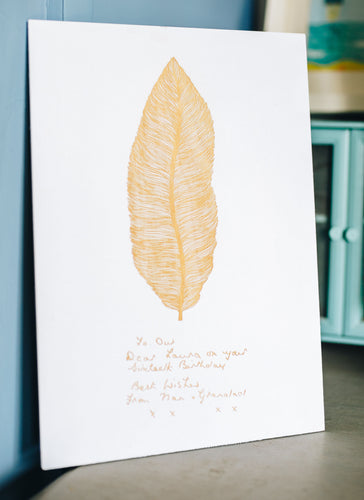 To Our
Dear Laura on your
Sixteeth Birthday
Best Wishes
From Nan + Grandad
x x x x